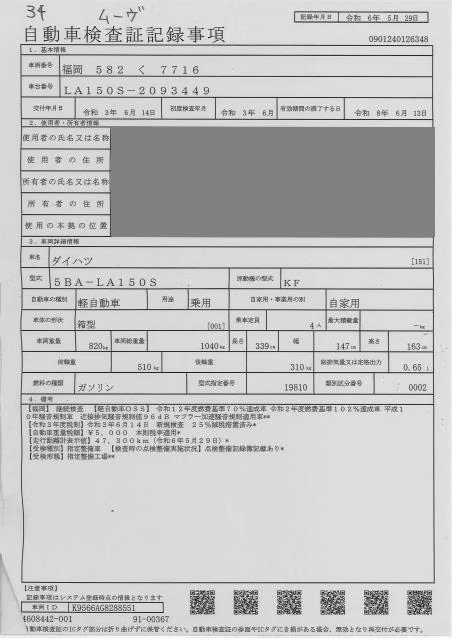 34 ムーヴ
記録年月日 令和 6年 5月 29日
自動車検査証記録事項
0901240126348
1．基本情報
車両番号 福岡 582 く 7716
車台番号 LA150S-2093449
交付年月日 令和 3年 6月 14日 初度検査年月 令和 3年 6月 有効期間の満了する日 令和 8年 6月 13日
2．使用者・所有者情報
使用者の氏名又は名称
使用者の住所
所有者の氏名又は名称
所有者の住所
使用の本拠の位置
3．車両詳細情報
車名 ダイハツ [151]
型式 5BA-LA150S 原動機の型式 KF
自動車の種別 軽自動車 用途 乗用 自家用・事業用の別 自家用
車体の形状 箱型 [001] 乗車定員 4人 最大積載量 -kg
車両重量 820kg 車両総重量 1040kg 長さ 339cm 幅 147cm 高さ 163cm
前軸重 510kg 後軸重 310kg 総排気量又は定格出力 0.65 L
燃料の種類 ガソリン 型式指定番号 19810 類別区分番号 0002
4．備考
【福岡】 継続検査 【軽自動車OSS】 令和12年度燃費基準70％達成車 令和2年度燃費基準102％達成車 平成10年騒音規制車 近接排気騒音規制値96dB マフラー加速騒音規制適用車**
【令和3年度税制】令和3年6月14日 新規検査 25％減税措置済み*
【自動車重量税額】¥5,000 本則税率適用*
【走行距離計表示値】47,300km（令和6年5月29日）*
【受検種別】指定整備車 【検査時の点検整備実施状況】点検整備記録簿記載あり*
【受検形態】指定整備工場**
【注意事項】
記録事項はシステム登録時点の情報となります
車両ID K9566AG8288551
4608442-001 91-00367
自動車検査証のICタグ部分は折り曲げずに保管ください。自動車検査証の券面やICタグにき損がある場合、無効となり再交付が必要です。